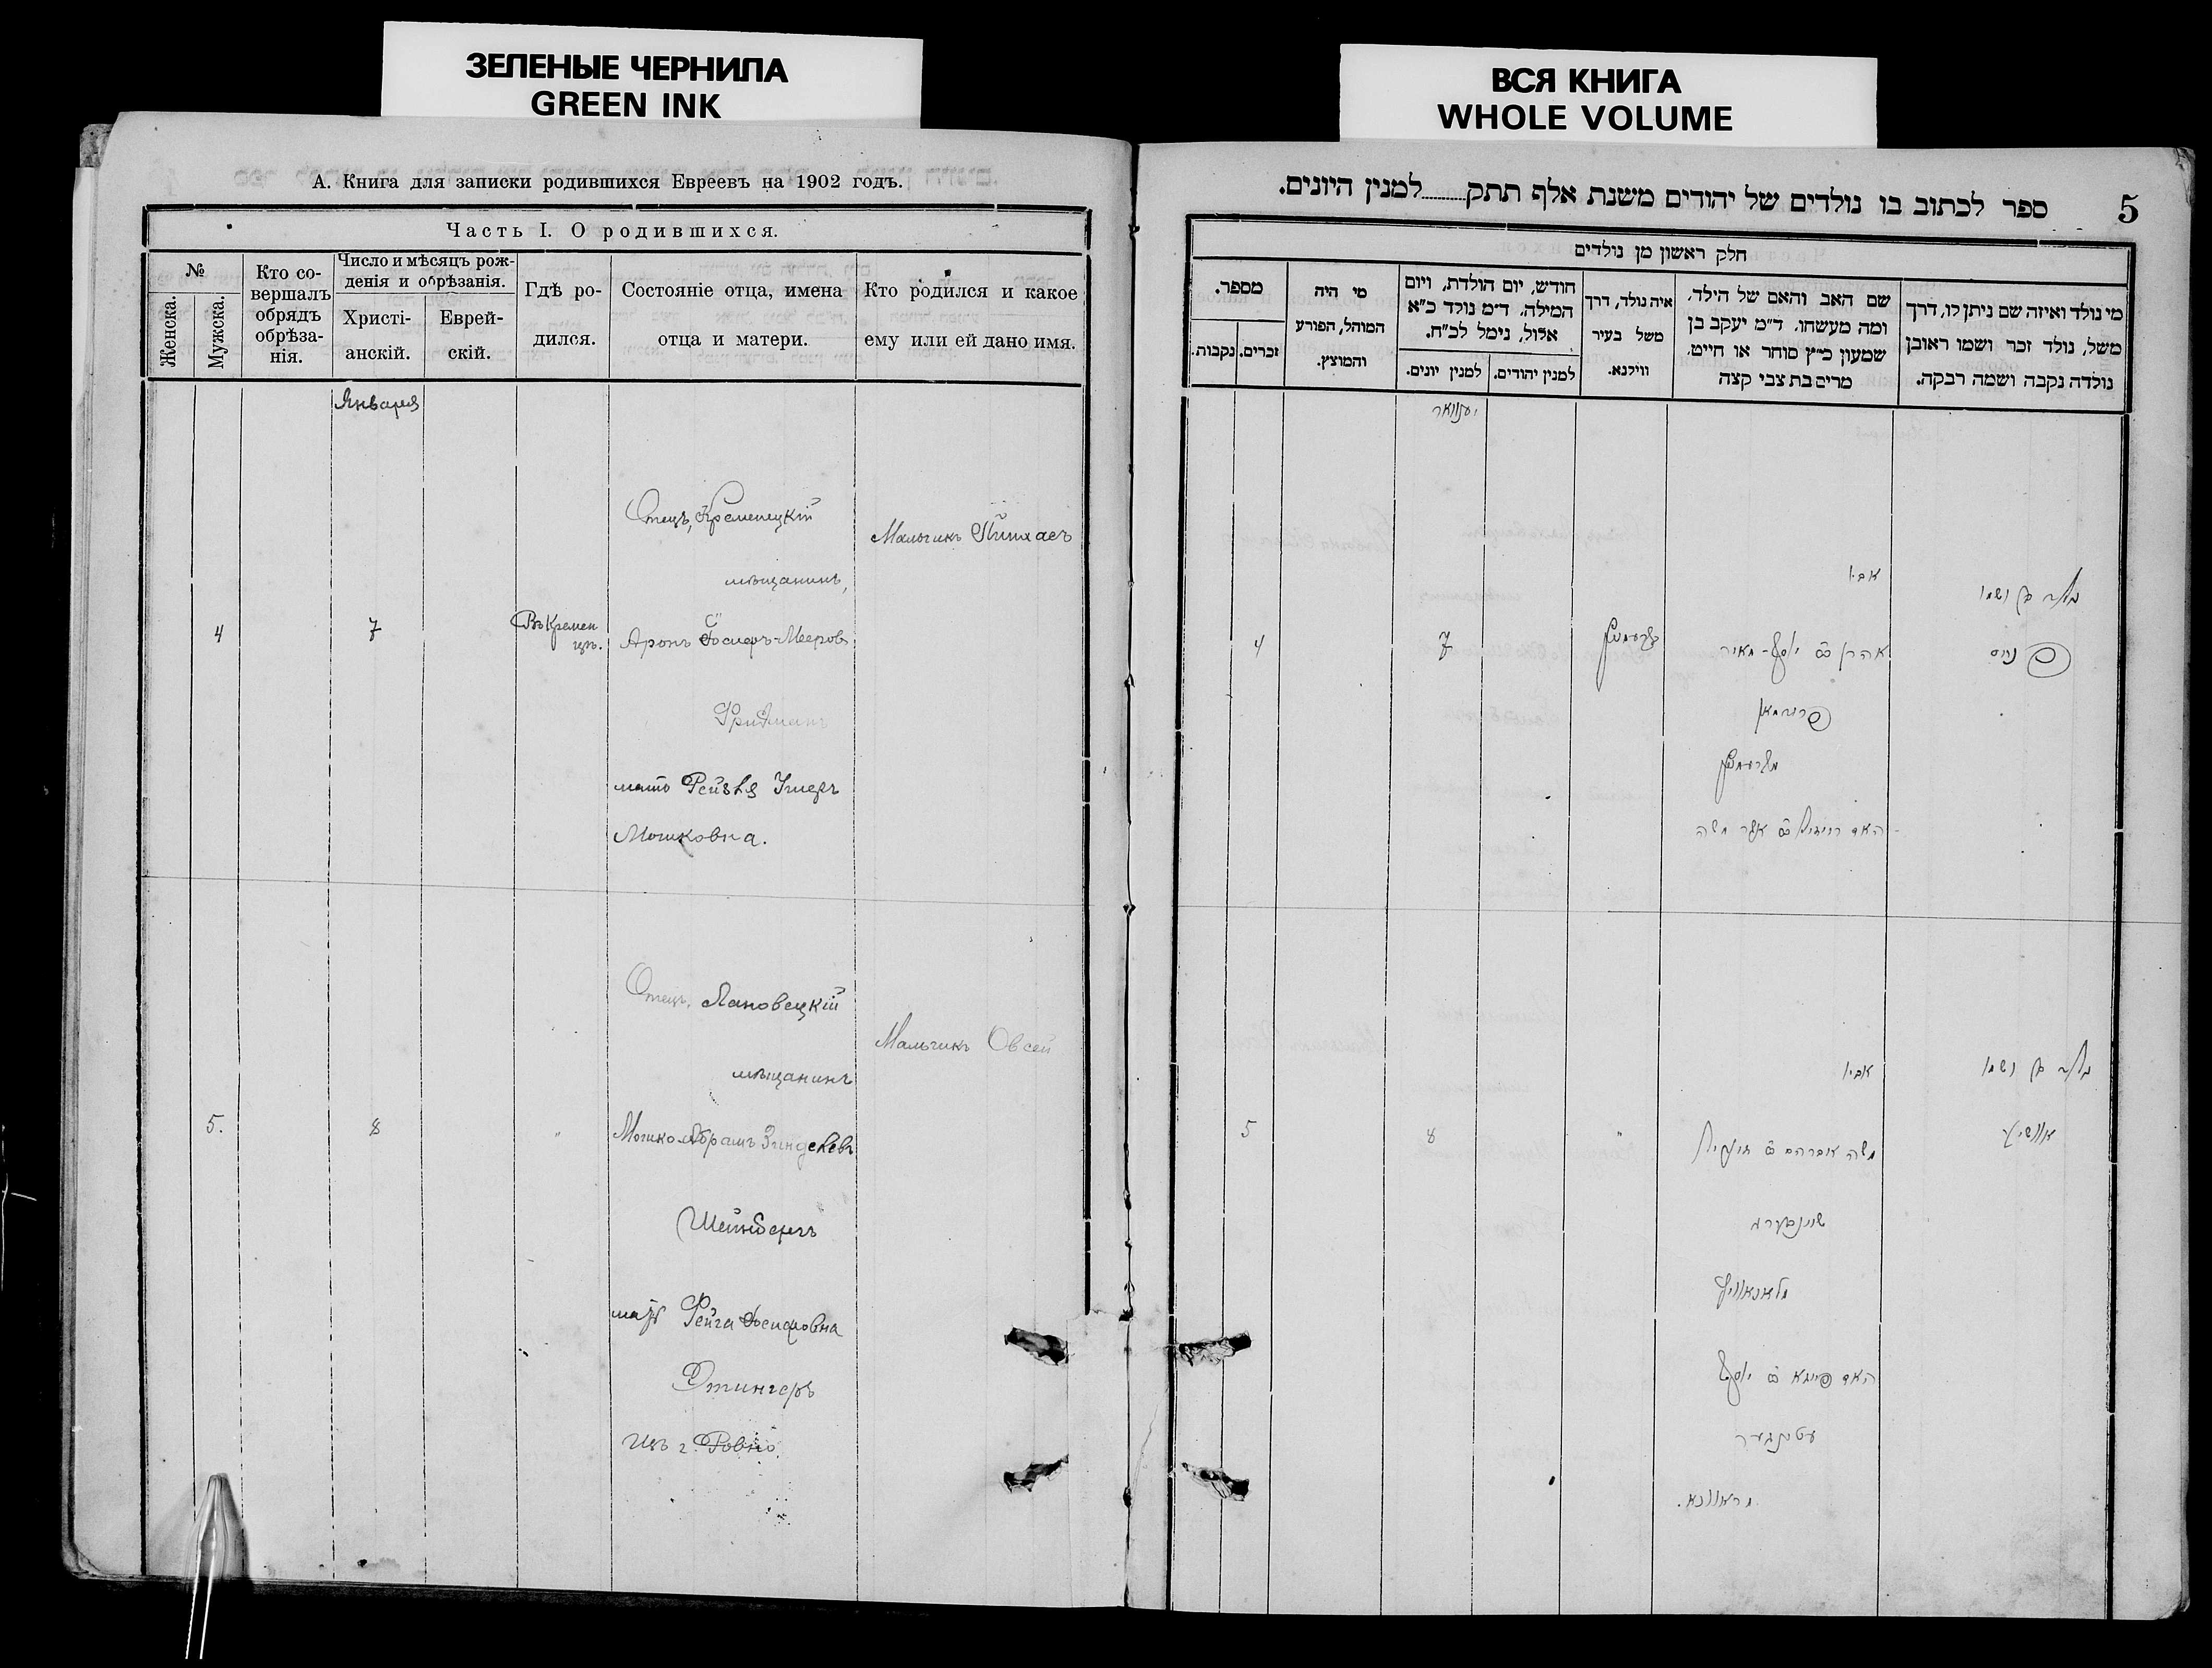 ЗЕЛЕНЫЕ ЧЕРНИЛА
GREEN INK
ВСЯ КНИГА
WHOLE VOLUME
А. Книга для записки родившихся Евреевъ на 1902 годъ.
Часть I. О родившихся.
№
Женска.
Мужска.
Кто со-
вершалъ
обрядъ
обрѣза-
нія.
Число и мѣсяцъ рож-
денія и обрѣзанія.
Христі-
анскій.
Еврей-
скій.
Гдѣ ро-
дился.
Состояніе отца, имена
отца и матери.
Кто родился и какое
ему или ей дано имя.
Января
Отецъ, Кременецкій
Мальчикъ Пинхасъ
мѣщанинъ,
4
7
Въ Кремен
цѣ.
Аронъ Іосифъ-Мееровъ
Фридманъ
мать Рейзля
Мошковна.
Отецъ, Лановецкій
Мальчикъ Овсей
мѣщанинъ
5.
8
"
Мошко Абрамъ Зинделевъ
Шейнбергъ
мать Фейга Іосифовна
Этингеръ
изъ г. Ровно.
5
ספר לכתוב בו נולדים של יהודים משנת אלף תתק למנין היונים.
חלק ראשון מן נולדים
מי נולד ואיזה שם ניתן לו, דרך
משל, נולד זכר ושמו ראובן
נולדה נקבה ושמה רבקה.
שם האב והאם של הילד,
ומה מעשהו. ד״מ יעקב בן
שמעון כ״ץ סוחר או חייט,
מרים בת צבי קצה
איה נולד, דרך
משל בעיר
ווילנא.
חודש, יום הולדת, ויום
המילה. ד״מ נולד כ״א
אלול, נימל לכ״ח.
למנין יהודים.
למנין יונים.
מי היה
המוהל, הפורע
והמוצץ.
מספר.
זכרים.
נקבות.
יאנוואר
אביו
נולד בן ושמו
4
7
קרעמניץ
אהרן ב״ר יוסף-מאיר
פנחס
פרידמאן
מקרעמניץ
אביו
נולד בן ושמו
5
8
"
משה אברהם ב״ר זינדיל
שיינבערג
האם פייגא ב״ר יוסף
עטינגער
מראוונא.